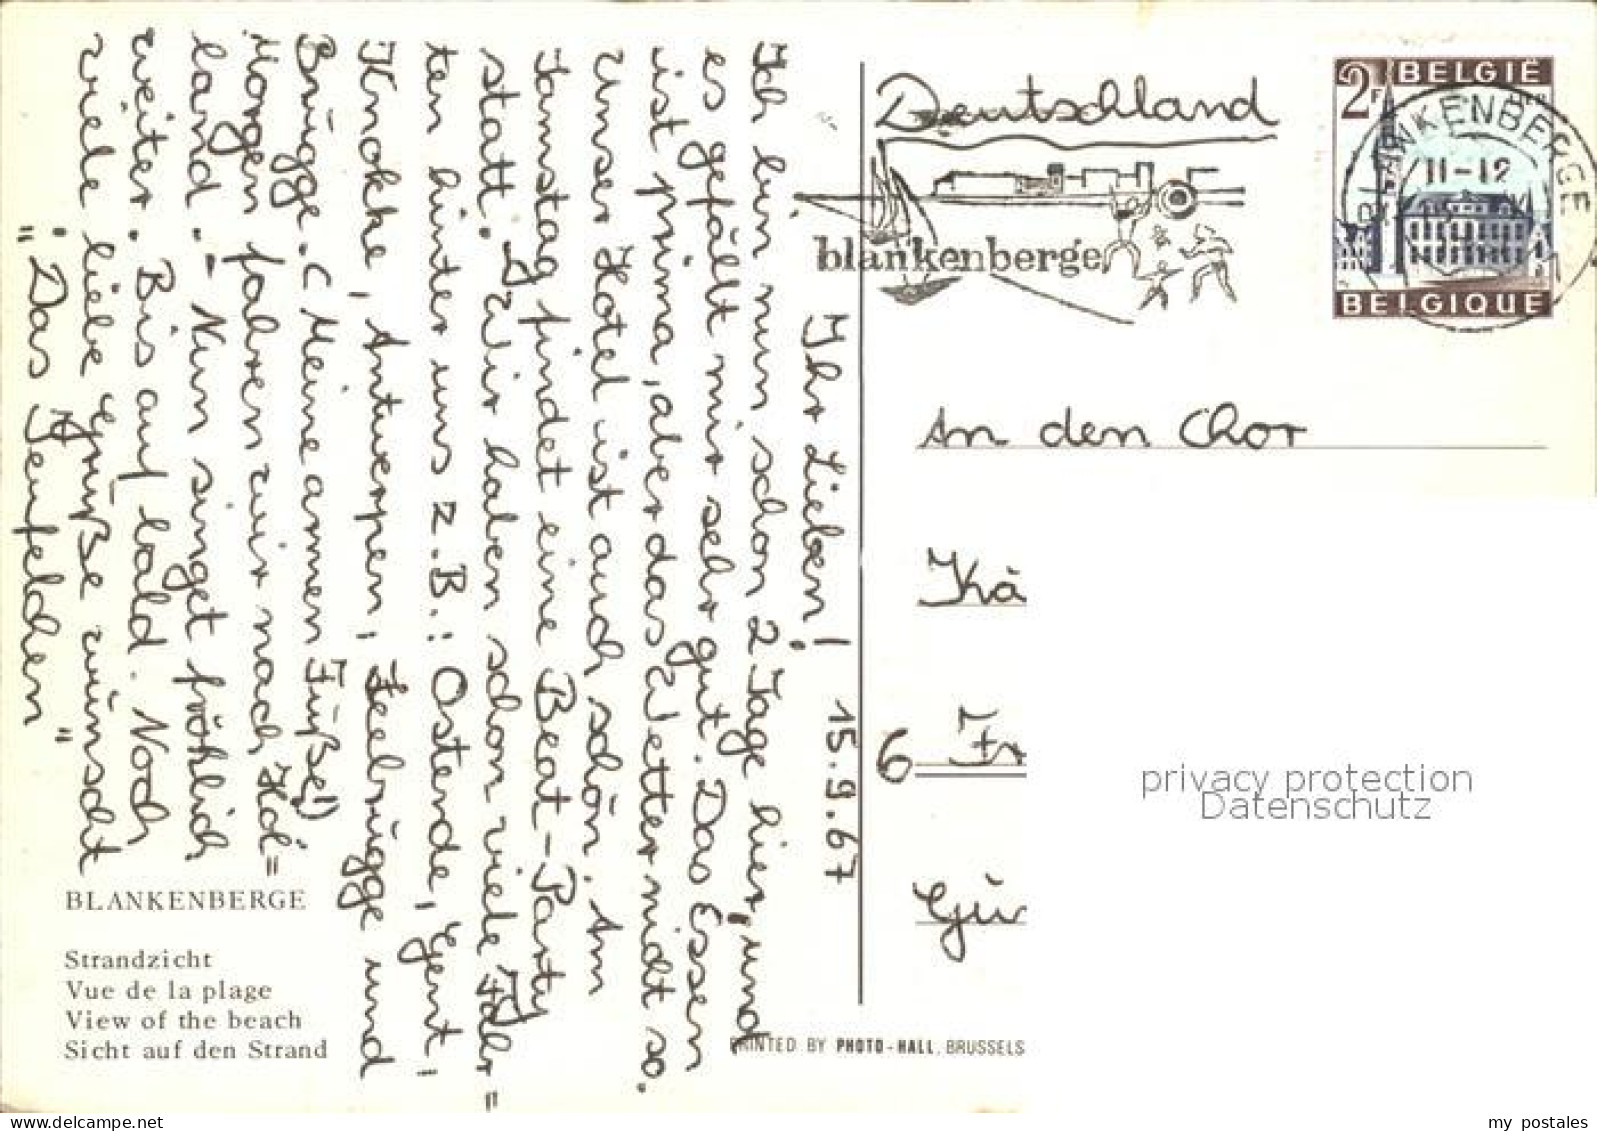 Ihr Lieben! 15.9.67
Ich bin nun schon 2 Tage hier, und
es gefällt mir sehr gut. Das Essen
ist prima, aber das Wetter nicht so.
Unser Hotel ist auch schön. Am
Samstag findet eine Beat-Party
statt. Wir haben schon viele Fahr=
ten hinter uns z.B.: Ostende, Gent,
Knokke, Antwerpen, Seebrügge und
Brügge. (Meine armen Füße!)
Morgen fahren wir nach Hol=
land. – Nun singet fröhlich
weiter. Bis auf bald. Noch
viele liebe Grüße wünscht
"Das Teufelchen"
BLANKENBERGE
Strandzicht
Vue de la plage
View of the beach
Sicht auf den Strand
PRINTED BY PHOTO-HALL, BRUSSELS
Deutschland
blankenberge
2F BELGIË
BELGIQUE
BLANKENBERGE
11-12
An den Chor
Kä
6 Fr
Gür
privacy protection
Datenschutz
my postales